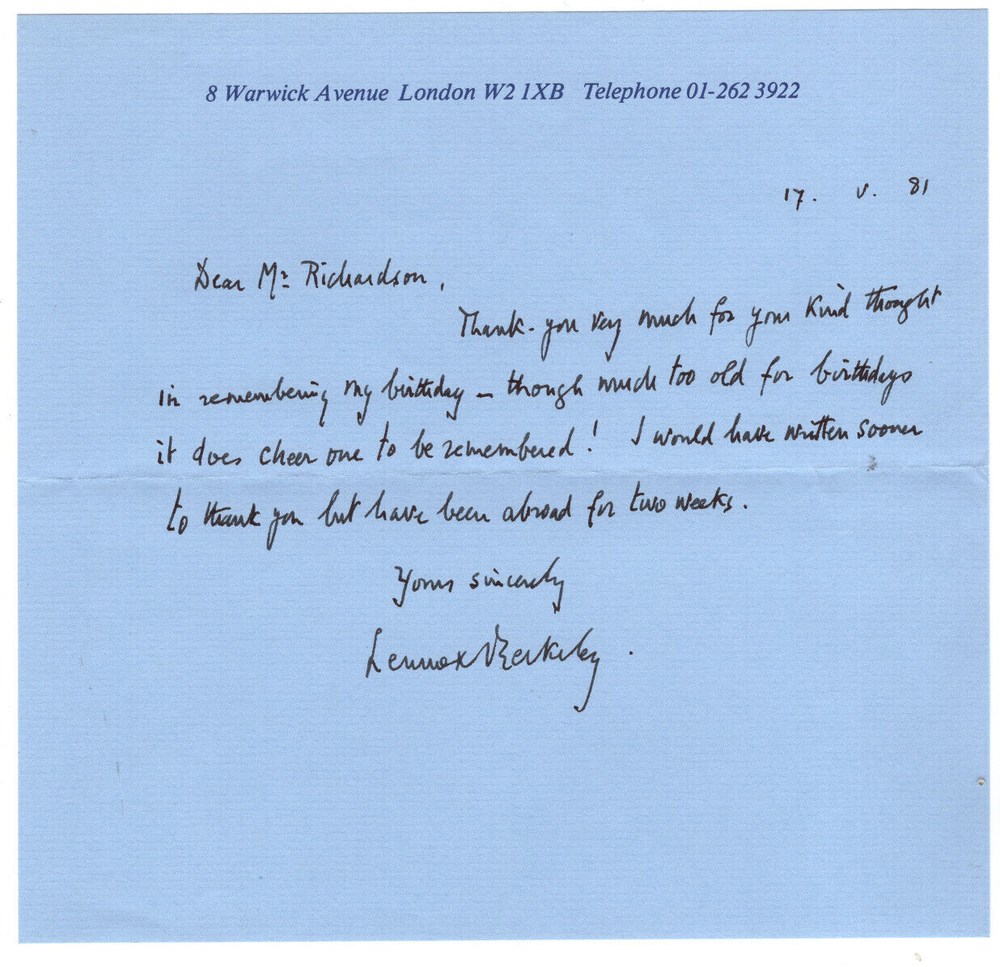 8 Warwick Avenue London W2 1XB Telephone 01-262 3922
17. V. 81
Dear Mr Richardson,
Thank-you very much for your kind thought
in remembering my birthday – though much too old for birthdays
it does cheer one to be remembered! I would have written sooner
to thank you but have been abroad for two weeks.
Yours sincerely
Lennox Berkeley.